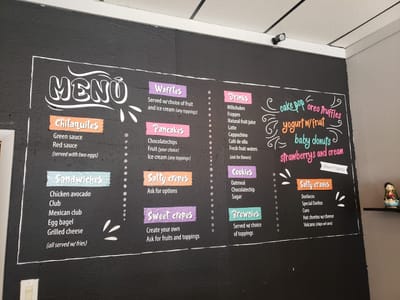 MENÚ
Chilaquiles
Green sauce
Red sauce
(served with two eggs)
Sandwiches
Chicken avocado
Club
Mexican club
Egg bagel
Grilled cheese
(all served w/ fries)
Waffles
Served w/choice of fruit
and ice cream (any toppings)
Pancakes
Chocolatechips
Fruit (your choice)
Ice cream (any toppings)
Salty crepes
Ask for options
Sweet crepes
Create your own
Ask for fruits and toppings
Drinks
Milkshakes
Frappes
Natural fruit juice
Latte
Cappuccino
Café de olla
Fresh fruit waters
(ask for flavors)
Cookies
Oatmeal
Chocolatechip
Sugar
Brownies
Served w/ choice
of toppings
cake pop oreo truffles
yogurt w/fruit
baby donuts
strawberrys and cream
Salty cravins
Dorilocos
Special Tostitos
Corn
Hot cheetos w/ cheese